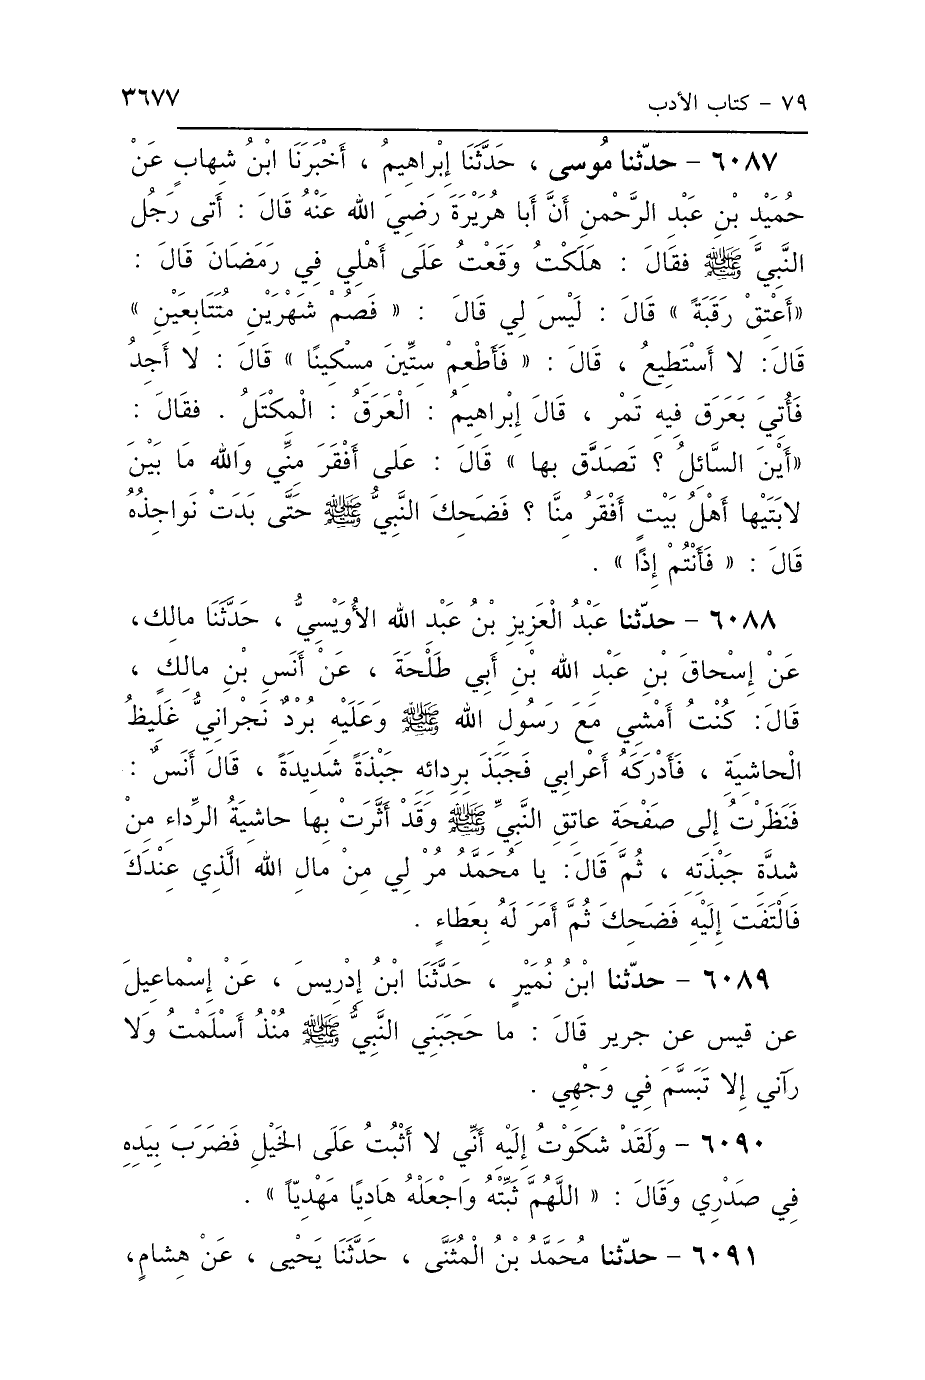 ٧٩ - كتاب الأدب ٣٦٧٧
٦٠٨٧ - حدّثنا مُوسى ، حَدَّثَنَا إِبْراهِيمُ ، أَخْبَرَنَا ابْنُ شهابٍ عَنْ
حُمَيْدِ بْنِ عَبْدِ الرَّحْمنِ أَنَّ أَبا هُرَيْرَةَ رَضِيَ الله عَنْهُ قَالَ : أَتى رَجُلٌ
النَّبِيَّ ﷺ فقَالَ : هَلَكْتُ وَقَعْتُ عَلَى أَهْلِي فِي رَمَضَانَ قَالَ :
«أَعْتِقْ رَقَبَةً » قَالَ : لَيْسَ لِي قَالَ : « فَصُمْ شَهْرَيْنِ مُتَتَابِعَيْنِ »
قَالَ: لا أَسْتَطِيعُ ، قَالَ : « فَأَطْعِمْ سِتِّينَ مِسْكِينًا » قَالَ : لا أَجِدُ
فَأُتِيَ بَعَرَقٍ فِيهِ تَمْر ، قَالَ إِبْراهِيمُ : الْعَرَقُ : الْمِكْتَلُ . فقَالَ :
«أَيْنَ السَّائِلُ ؟ تَصَدَّق بها » قَالَ : عَلى أَفْقَرَ مِنِّي وَالله مَا بَيْنَ
لابَتَيْها أَهْلُ بَيْتٍ أَفْقَرُ مِنَّا ؟ فَضَحِكَ النَّبِيُّ ﷺ حَتَّى بَدَتْ نَواجِذُهُ
قَالَ : « فَأَنْتُمْ إِذًا » .
٦٠٨٨ - حدّثنا عَبْدُ الْعَزِيزِ بْنُ عَبْدِ الله الأُوَيْسِيُّ ، حَدَّثَنَا مالِك،
عَنْ إِسْحاقَ بْنِ عَبْدِ الله بْنِ أَبي طَلْحَةَ ، عَنْ أَنَسِ بْنِ مالِكٍ ،
قَالَ: كُنْتُ أَمْشِي مَعَ رَسُولِ الله ﷺ وَعَلَيْهِ بُرْدٌ نَجْرانِيٌّ غَلِيظُ
الْحاشِيَةِ ، فَأَدْرَكَهُ أَعْرابي فَجَبَذَ بِردائِهِ جَبْذَةً شَدِيدَةً ، قَالَ أَنَسٌ :
فَنَظَرْتُ إِلى صَفْحَةِ عاتِقِ النَّبِيِّ ﷺ وَقَدْ أَثَّرَتْ بِها حاشِيَةُ الرِّداءِ مِنْ
شدَّةِ جَبْذَتِهِ ، ثُمَّ قَالَ: يا مُحَمَّدُ مُرْ لِي مِنْ مالِ الله الَّذِي عِنْدَكَ
فَالْتَفَتَ إِلَيْهِ فَضَحِكَ ثُمَّ أَمَرَ لَهُ بِعَطاءٍ .
٦٠٨٩ - حدّثنا ابْنُ نُمَيْرٍ ، حَدَّثَنَا ابْنُ إِدْرِيسَ ، عَنْ إِسْماعِيلَ
عن قيس عن جرير قَالَ : ما حَجَبَنِي النَّبِيُّ ﷺ مُنْذُ أَسْلَمْتُ وَلا
رآنِي إِلا تَبَسَّمَ فِي وَجْهِي .
٦٠٩٠ - وَلَقَدْ شَكَوْتُ إِلَيْهِ أَنِّي لا أَثْبُتُ عَلَى الخَيْلِ فَضَرَبَ بِيَدِهِ
فِي صَدْرِي وَقَالَ : « اللَّهُمَّ ثَبِّتْهُ وَاجْعَلْهُ هَادِيًا مَهْدِيّاً » .
٦٠٩١ - حدّثنا مُحَمَّدُ بْنُ الْمُثَنَّى ، حَدَّثَنَا يَحْيى ، عَنْ هِشامٍ،